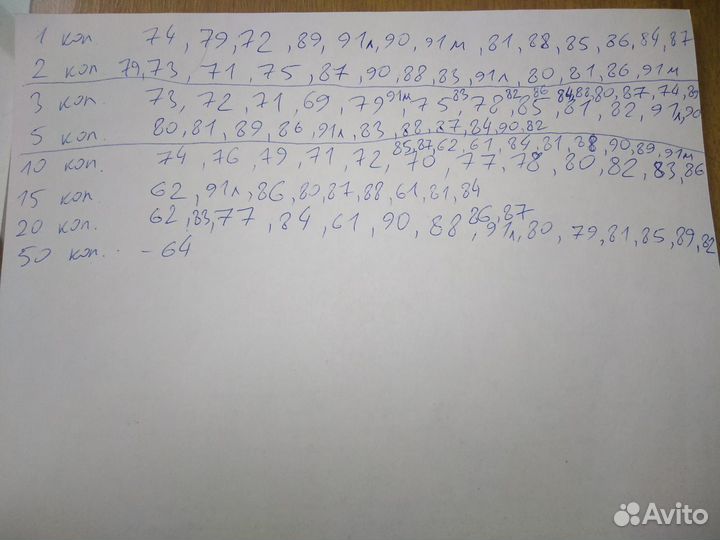 1 коп 74, 79, 72, 89, 91л, 90, 91м, 81, 88, 85, 86, 84, 87
2 коп 79, 73, 71, 75, 87, 90, 88, 83, 91л, 80, 81, 86, 91м
91м 83 82 86 84, 88, 80, 87, 74, 89
3 коп. 73, 72, 71, 69, 79, 75, 78, 85, 81, 82, 91л, 90
5 коп. 80, 81, 89, 86, 91л, 83, 88, 87, 84, 90, 82
85, 87, 62, 61, 84, 81, 88, 90, 89, 91м
10 коп. 74, 76, 79, 71, 72, 70, 77, 78, 80, 82, 83, 86
15 коп. 62, 91л, 86, 80, 87, 88, 61, 81, 84
86, 87
20 коп. 62, 83, 77, 84, 61, 90, 88, 91л, 80, 79, 81, 85, 89, 82
50 коп. - 64
Avito